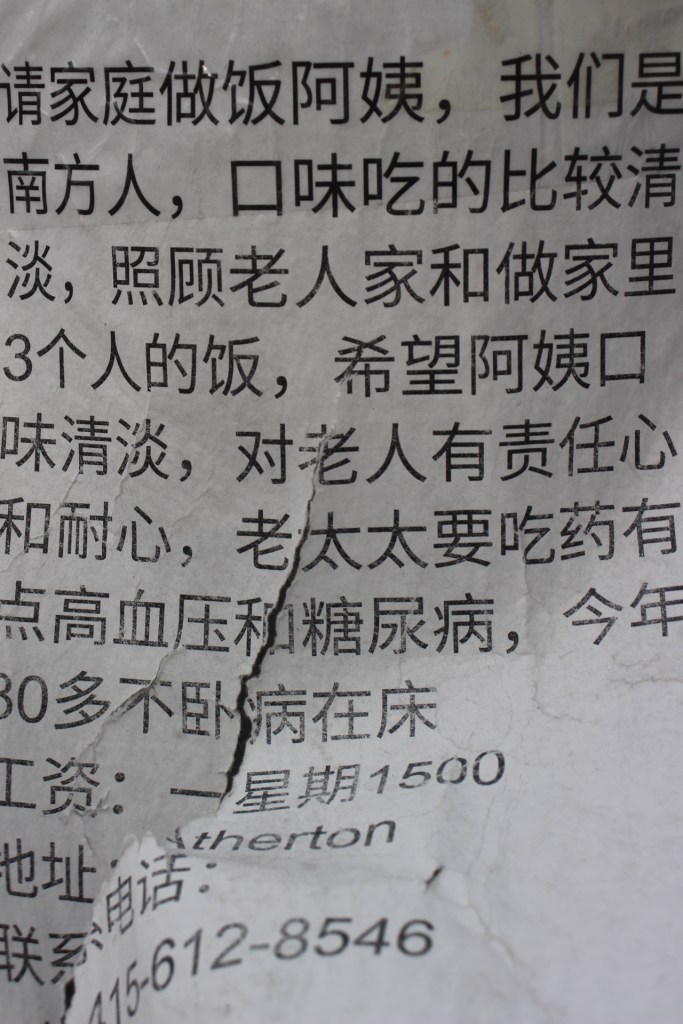 请家庭做饭阿姨，我们是
南方人，口味吃的比较清
淡，照顾老人家和做家里
3个人的饭，希望阿姨口
味清淡，对老人有责任心
和耐心，老太太要吃药有
点高血压和糖尿病，今年
80多不卧病在床
工资：一星期1500
地址：Atherton
联系电话：
415-612-8546